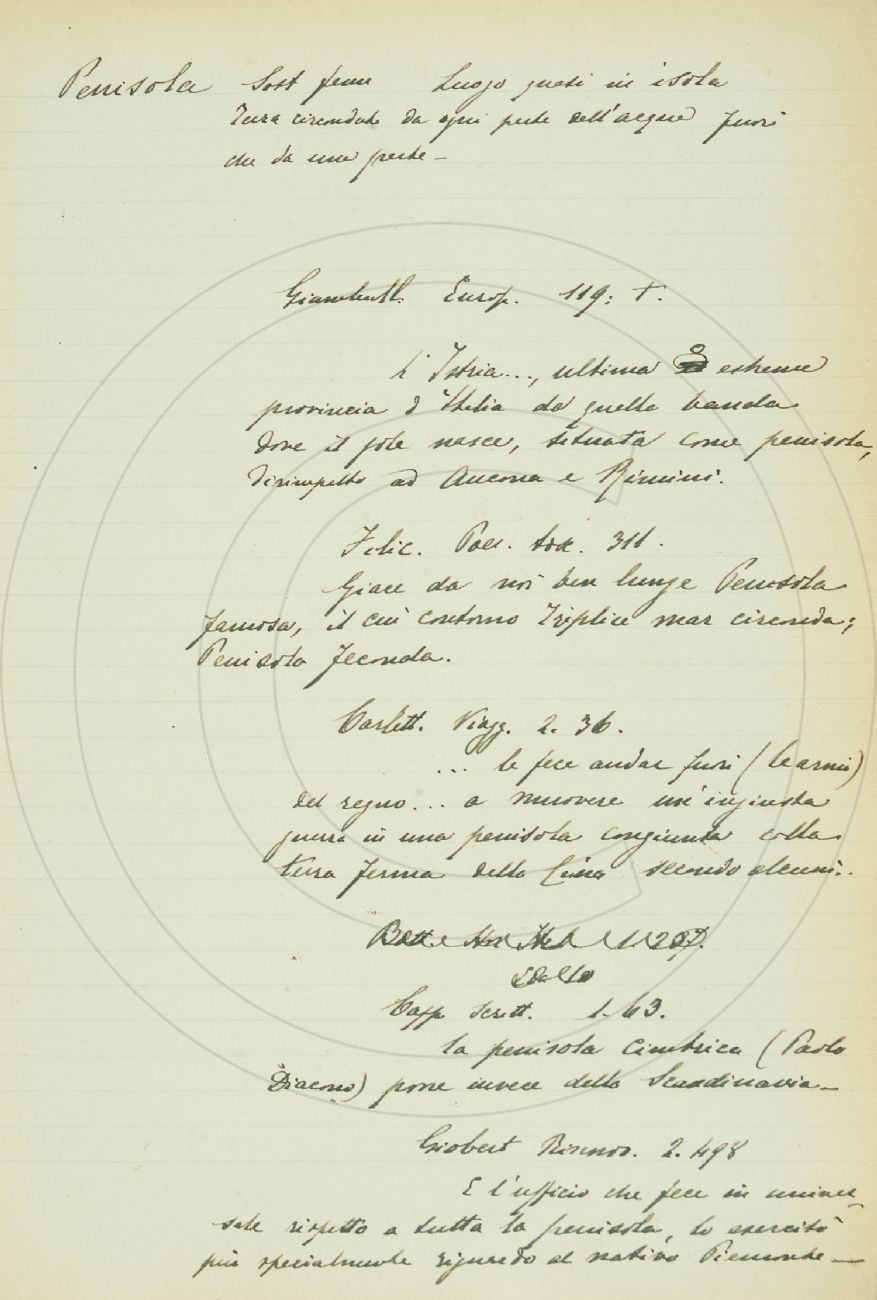 Penisola Sost femm Luogo quasi in isola
Terra circondata da ogni parte dell'acqua fuori
che da una parte –
Giambull. Europ. 119: T.
L'Istria..., ultima estrema
provincia d'Italia da quella banda
dove il sole nasce, situata come penisola,
dirimpetto ad Ancona e Rimini.
Filic. Poes. tox. 311.
Giace da noi ben lunge Penisola
famosa, il cui contorno Triplice mar circonda;
Penisola feconda.
Carlett. Viagg. 2. 36.
... le fece andar fuori (le armi)
del regno... a muovere un'ingiusta
guerra in una penisola congiunta colla
terra ferma della Cina secondo alcuni..
Capp. Scritt. 1. 43.
la penisola Cimbrica (Paolo
Diacono) pone invece della Scandinavia –
Giobert Rinnov. 2. 498
E l'ufficio che fece in univer-
sale rispetto a tutta la penisola, lo esercitò
più specialmente riguardo al nativo Piemonte –